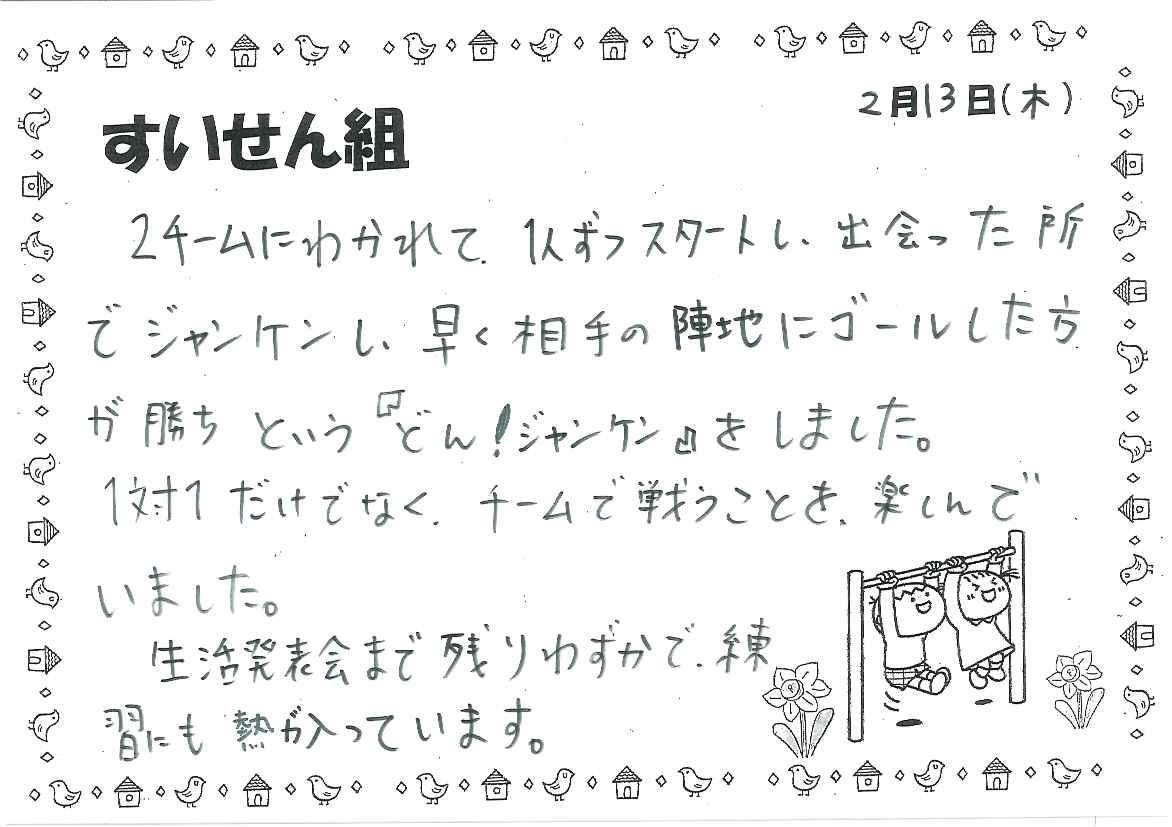 2月13日(木)
すいせん組
2チームにわかれて、1人ずつスタートし、出会った所
でジャンケンし、早く相手の陣地にゴールした方
が勝ちという『どん!ジャンケン』をしました。
1対1だけでなく、チームで戦うことを、楽しんで
いました。
生活発表会まで残りわずかで、練
習にも熱が入っています。